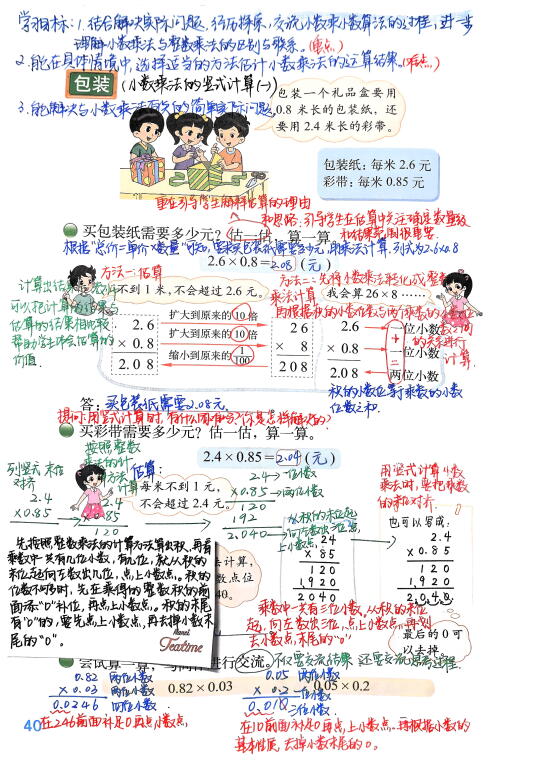 学习目标：1.结合解决实际问题，经历探索、交流小数乘小数算法的过程，进一步
理解小数乘法与整数乘法的区别与联系。(重点)
2.能在具体情境中，选择适当的方法估计小数乘法的运算结果。(难点)
包装 (小数乘法的竖式计算(一))
3.能解决与小数乘法有关的简单实际问题。
包装一个礼品盒要用
0.8 米长的包装纸，还
要用 2.4 米长的彩带。
包装纸：每米 2.6 元
彩带：每米 0.85 元
重在引导学生解释估算的理由
买包装纸需要多少元？估一估，算一算。
根据"总价=单价×数量"可知，要求买包装纸需要多少元，用乘法计算，列式为2.6×0.8
2.6×0.8=2.08(元)
方法一：估算
不到 1 米，不会超过 2.6 元。
方法二：先将小数乘法转化成整数
乘法计算
我会算 26×8 ……
2.6 扩大到原来的10倍 26 2.6 一位小数
×0.8 扩大到原来的10倍 × 8 ×0.8 一位小数
2.08 缩小到原来的1/100 208 2.08 两位小数
积的小数位数等于乘数的小数
位数之和.
答：买包装纸需要2.08元.
买彩带需要多少元？估一估，算一算。
2.4×0.85=2.04(元)
列竖式 末位
对齐
2.4
×0.85
按照整数
乘法的计算
方法计算
2.4
×0.85
120
估算：
每米不到 1 元，
不会超过 2.4 元。
2.4→一位小数
×0.85→两位小数
120
192
2.040
从积的末位起
向左数出三位，点
上小数点。
24
×85
120
1920
2040
用竖式计算小数
乘法时，要把乘数
的末位对齐.
也可以写成：
2.4
×0.85
120
1920
2.040
先按照整数乘法的计算方法算出积，再看
乘数中一共有几位小数，有几位，就从积的
末位起向左数出几位，点上小数点。积的
位数不够时，先在乘得的整数积的前
面添"0"补位，再点上小数点。积的末尾
有"0"的，要先点上小数点，再去掉小数末
尾的"0"。
Teatime
乘数中一共有三位小数，从积的末位
起，向左数出三位，点上小数点，再划
去小数点末尾的"0"
最后的 0 可
以去掉。
尝试算一算，与同伴进行交流。不仅要交流结果，还要交流思考过程.
0.82×0.03
0.05×0.2
0.82 两位小数
×0.03 两位小数
0.0246 四位小数
0.05 两位小数
×0.2 一位小数
0.010 三位小数
在246前面补足0再点小数点.
在10前面补足0再点上小数点，再根据小数的
基本性质，去掉小数末尾的0。
40